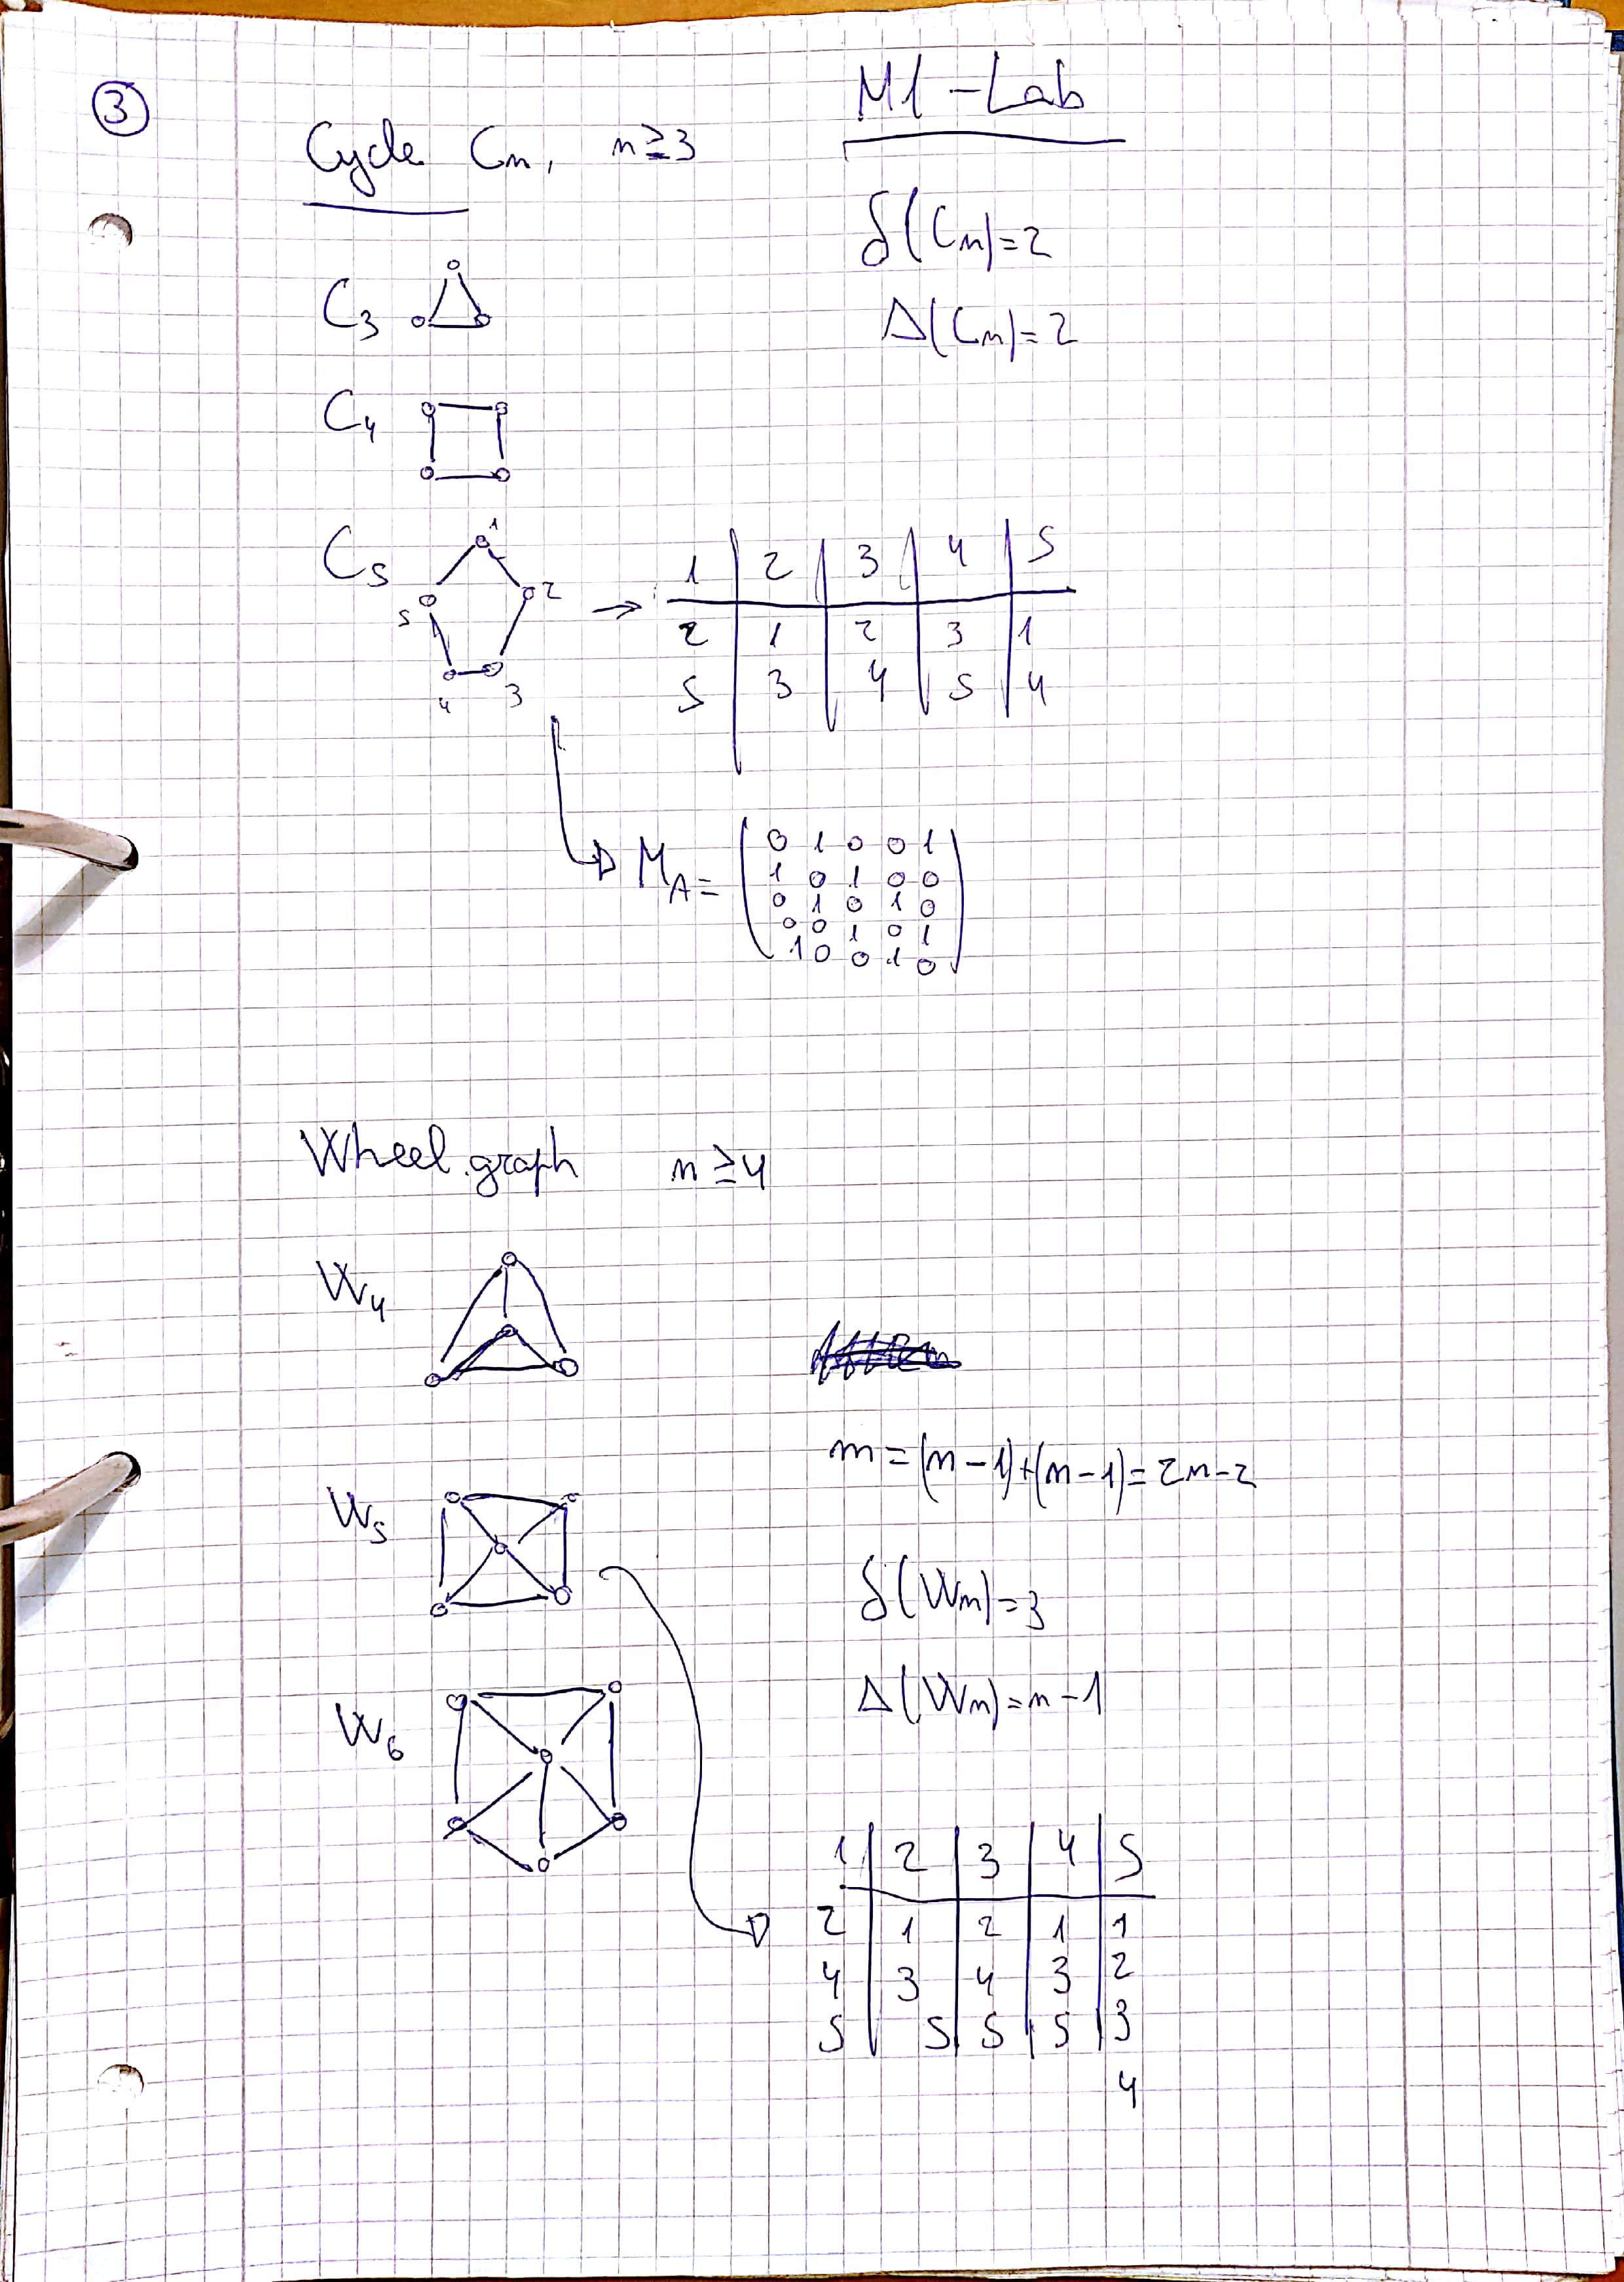 ③
M1 - Lab
Cycle Cn, n≥3
δ(Cn)=2
Δ(Cn)=2
C3
C4
C5
1
2
3
4
5
→
1 | 2 | 3 | 4 | 5
2 | 1 | 2 | 3 | 1
5 | 3 | 4 | 5 | 4
MA=
0 1 0 0 1
1 0 1 0 0
0 1 0 1 0
0 0 1 0 1
1 0 0 1 0
Wheel graph n≥4
W4
m=(n-1)+(n-1)=2n-2
W5
δ(Wn)=3
Δ(Wn)=n-1
W6
1 | 2 | 3 | 4 | 5
2 | 1 | 2 | 1 | 1
4 | 3 | 4 | 3 | 2
5 | 5 | 5 | 5 | 3
4